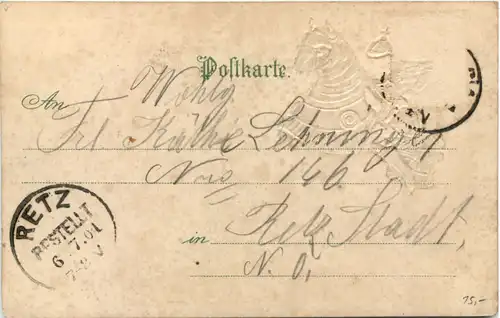 Postkarte.
Wohlg
An Frl Käthe Lehninger
Nro 146
in Retz Stadt,
N. Ö,
RETZ
BESTELLT
6 7.01
15,-